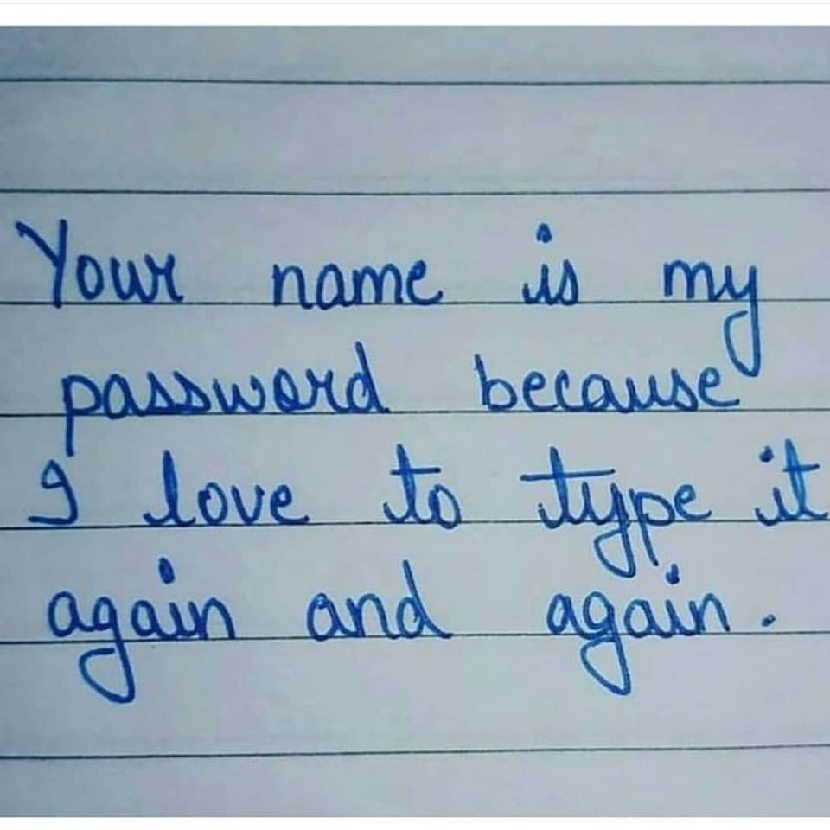 Your name is my
password because
I love to type it
again and again.